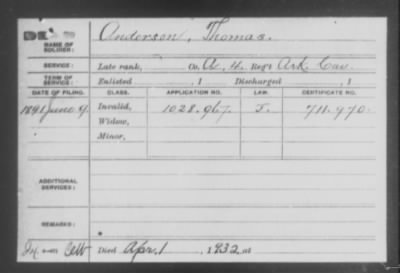 DEAD
NAME OF SOLDIER: Anderson, Thomas.
SERVICE: Late rank, Co. A, 4. Reg't Ark. Cav.
TERM OF SERVICE: Enlisted , 1 Discharged , 1
DATE OF FILING. CLASS. APPLICATION NO. LAW. CERTIFICATE NO.
1891 June 9. Invalid, 1028.967. J. 711.970.
Widow,
Minor,
ADDITIONAL SERVICES:
REMARKS:
Died Apr. 1, 1932, at